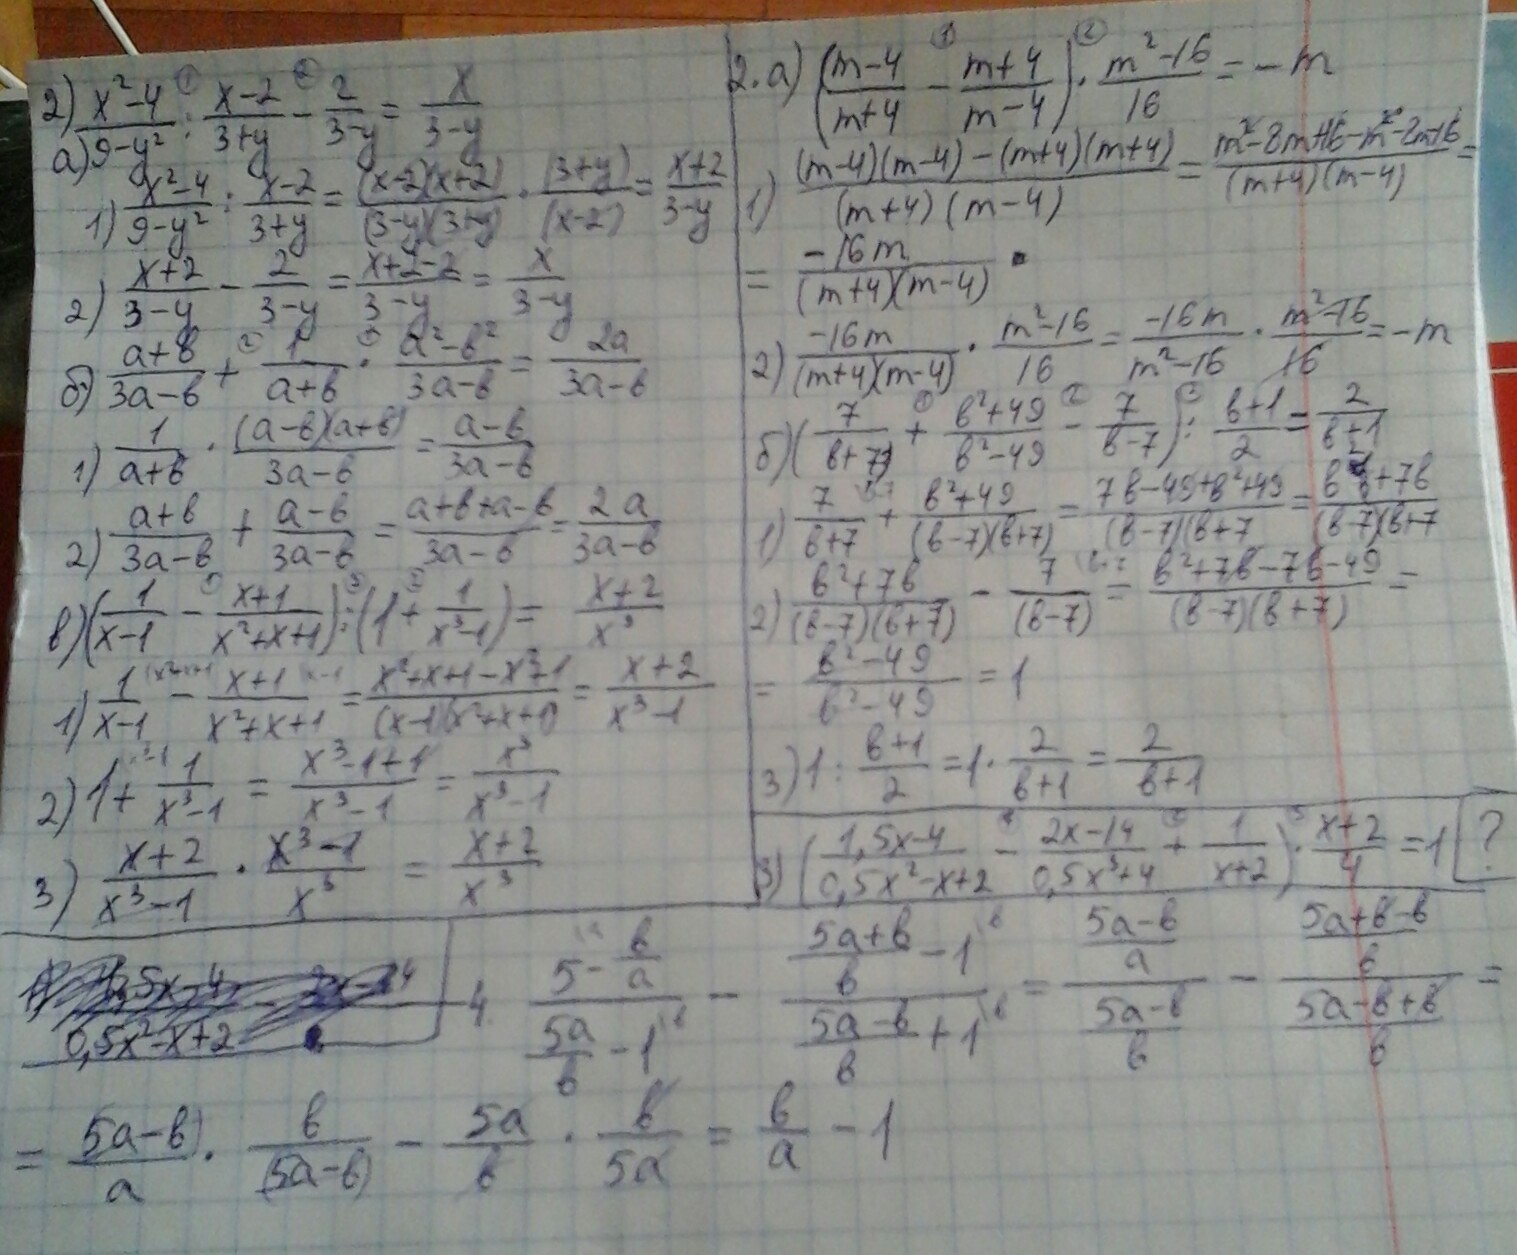 2) (x²-4)/(9-y²) : (x-2)/(3+y) - 2/(3-y) = x/(3-y)
а)
1) (x²-4)/(9-y²) : (x-2)/(3+y) = (x-2)(x+2)/(3-y)(3+y) · (3+y)/(x-2) = (x+2)/(3-y)
2) (x+2)/(3-y) - 2/(3-y) = (x+2-2)/(3-y) = x/(3-y)
б) (a+b)/(3a-b) + 1/(a+b) · (a²-b²)/(3a-b) = 2a/(3a-b)
1) 1/(a+b) · (a-b)(a+b)/(3a-b) = (a-b)/(3a-b)
2) (a+b)/(3a-b) + (a-b)/(3a-b) = (a+b+a-b)/(3a-b) = 2a/(3a-b)
в) (1/(x-1) - (x+1)/(x²+x+1)) : (1 + 1/(x³-1)) = (x+2)/x³
1) 1/(x-1) - (x+1)/(x²+x+1) = (x²+x+1-x²+1)/(x-1)(x²+x+1) = (x+2)/(x³-1)
2) 1 + 1/(x³-1) = (x³-1+1)/(x³-1) = x³/(x³-1)
3) (x+2)/(x³-1) · (x³-1)/x³ = (x+2)/x³
2. а) ((m-4)/(m+4) - (m+4)/(m-4)) · (m²-16)/16 = -m
1) ((m-4)(m-4) - (m+4)(m+4))/(m+4)(m-4) = (m²-8m+16-m²-8m-16)/(m+4)(m-4) =
= -16m/(m+4)(m-4)
2) -16m/(m+4)(m-4) · (m²-16)/16 = -16m/(m²-16) · (m²-16)/16 = -m
б) (7/(b+7) + (b²+49)/(b²-49) - 7/(b-7)) : (b+1)/2 = 2/(b+1)
1) 7/(b+7) + (b²+49)/(b-7)(b+7) = (7b-49+b²+49)/(b-7)(b+7 = (b²+7b)/(b-7)(b+7
2) (b²+7b)/(b-7)(b+7) - 7/(b-7) = (b²+7b-7b-49)/(b-7)(b+7) =
= (b²-49)/(b²-49) = 1
3) 1 : (b+1)/2 = 1 · 2/(b+1) = 2/(b+1)
3) ((1,5x-4)/(0,5x²-x+2) - (2x-14)/(0,5x³+4) + 1/(x+2)) · (x+2)/4 = 1 ?
0,5x²-x+2
4. (5 - b/a)/(5a/b - 1) - ((5a+b)/b - 1)/((5a-b)/b + 1) = ((5a-b)/a)/((5a-b)/b) - ((5a+b-b)/b)/((5a-b+b)/b) =
= (5a-b)/a · b/(5a-b) - 5a/b · b/5a = b/a - 1